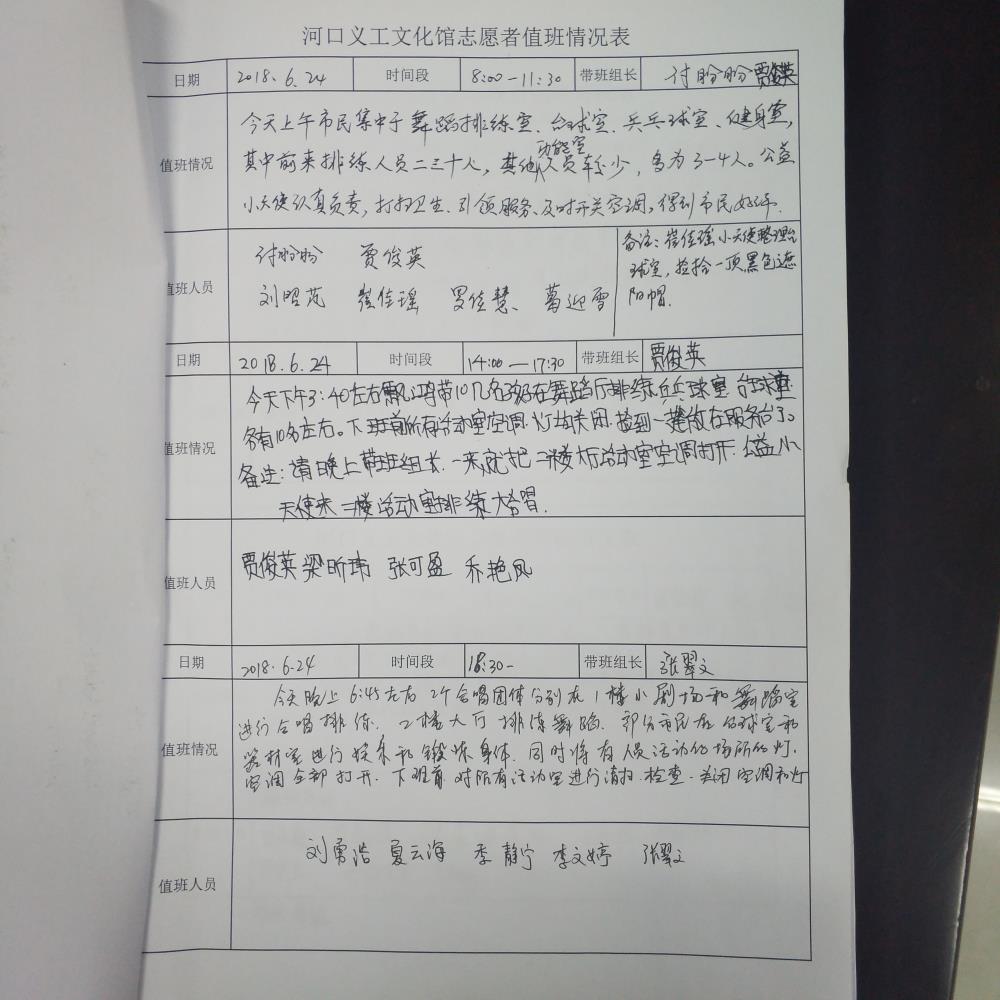 河口义工文化馆志愿者值班情况表
日期 2018.6.24 时间段 8:00-11:30 带班组长 付盼盼 贾俊英
今天上午市民集中于舞蹈排练室、台球室、乒乓球室、健身室,
值班情况 其中前来排练人员二三十人,其他功能室人员较少,多为3-4人。公益
小天使认真负责,打扫卫生、引领服务、及时开关空调,得到市民好评.
付盼盼 贾俊英
值班人员 刘昭芃 崔佳瑶 罗佳慧、葛迎雪
备注:崔佳瑶小天使整理台
球室,捡拾一顶黑色遮
阳帽.
日期 2018.6.24 时间段 14:00—17:30 带班组长 贾俊英
今天下午3:40左右 带10几名孩子在舞蹈厅排练乒乓球室 台球室
值班情况 各有10名左右。下班前所有活动室空调.灯均关闭.捡到一 放在服务台了。
备注:请晚上带班组长.一来就把二楼 活动室空调打开.公益小
天使来二楼活动室排练大合唱.
值班人员 贾俊英 梁昕玮 张可盈 乔艳凤
日期 2018.6.24 时间段 18:30- 带班组长 张翠文
今天晚上6:45左右 2个合唱团体分别在1楼小剧场和舞蹈室
进行合唱排练.2楼大厅排练舞蹈.部分市民在台球室和
值班情况 器材室进行娱乐和锻炼身体.同时将有人员活动的场所的灯.
空调全部打开.下班前对所有活动室进行清扫.检查.关闭空调和灯
值班人员 刘勇浩 夏云海 季静宁 李文婷 张翠文